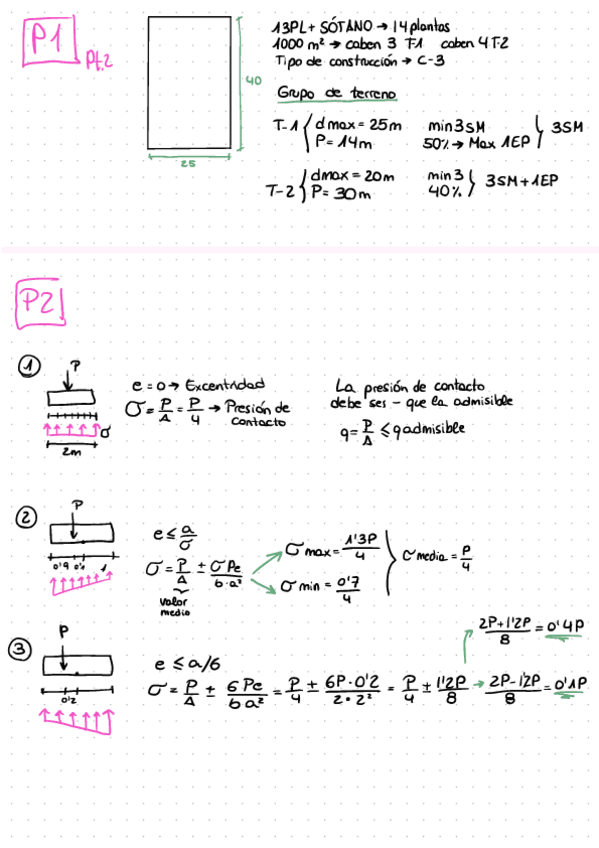 P1
Pt.2
40
25
13PL + SÓTANO → 14 plantas
1000 m² → caben 3 T-1 caben 4 T-2
Tipo de construcción → C-3
Grupo de terreno
T-1 { dmax = 25m min 3SM } 3SM
P = 14m 50% → Max 1EP
T-2 { dmax = 20m min 3 } 3SM + 1EP
P = 30m 40%
P2
1
P
σ
2m
e = 0 → Excentridad
σ = P/A = P/4 → Presión de contacto
La presión de contacto
debe ses - que la admisible
q = P/A ≤ q admisible
2
P
0'9 0'1 1
e ≤ a/σ
σ = P/A ± σPe/b·a²
valor
medio
σmax = 1'3P/4
σmin = 0'7/4
σmedia = P/4
3
P
0'2
e ≤ a/6
σ = P/A ± 6Pe/ba² = P/4 ± 6P·0'2/2·2² = P/4 ± 1'2P/8 → 2P-1'2P/8 = 0'1P
2P+1'2P/8 = 0'4P